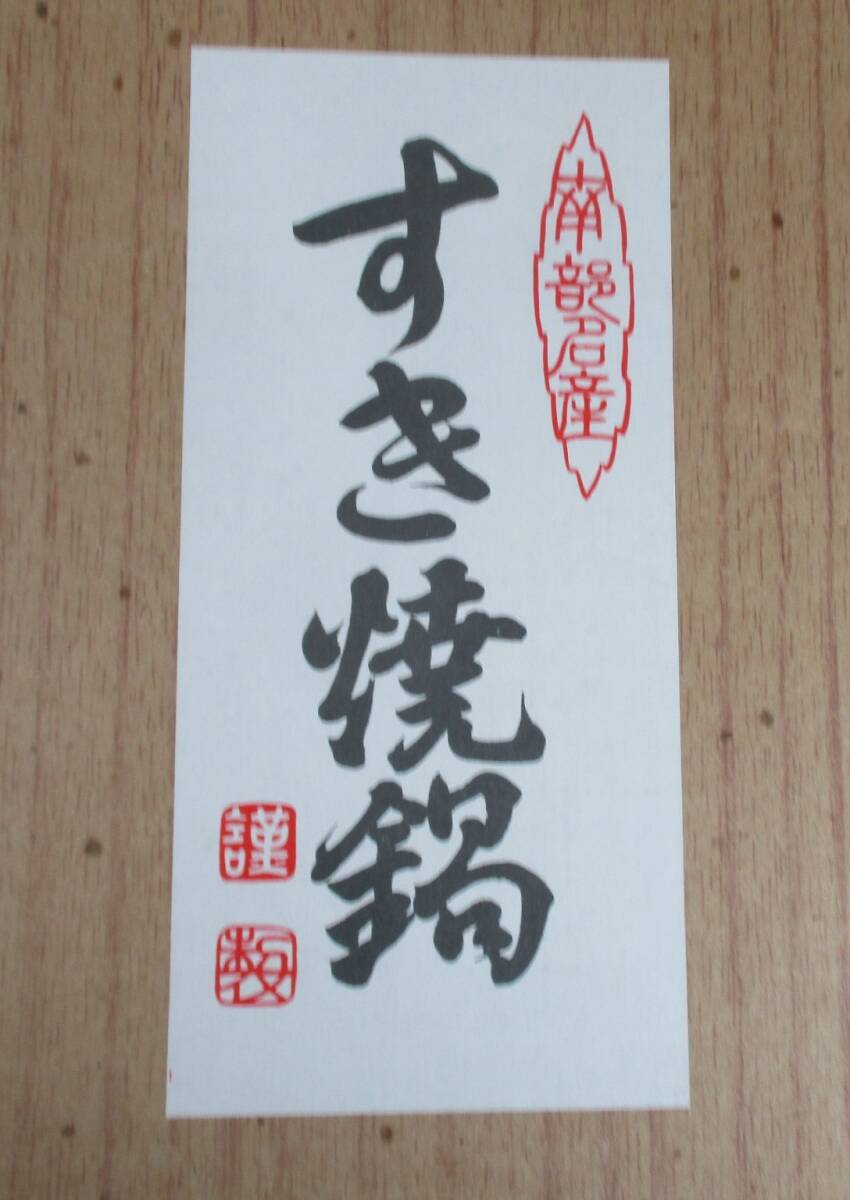 南部名産
すき焼鍋
謹
製